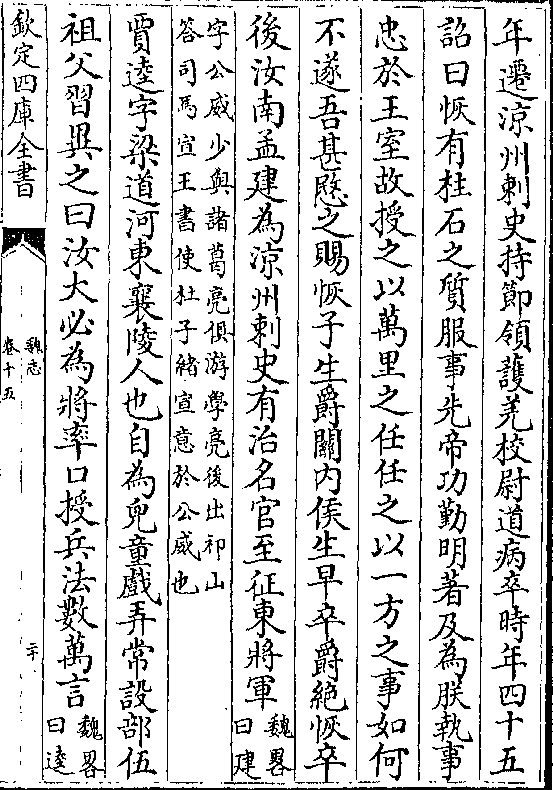 年遷涼州刺史持節領護羌校尉道病卒時年四十五
詔曰恢有柱石之質服事先帝功勤明著及為朕執事
忠於王室故授之以萬里之任任之以一方之事如何
不遂吾甚愍之賜恢子生爵關內侯生早卒爵絕恢卒
後汝南孟建為涼州刺史有治名官至征東將軍魏畧曰建
字公威少與諸葛亮俱游學亮後出祁山
答司馬宣王書使杜子緒宣意於公威也
賈逵字梁道河東襄陵人也自為兒童戲弄常設部伍
祖父習異之曰汝大必為將率口授兵法數萬言魏畧曰逵
欽定四庫全書
魏志
卷十五
二十